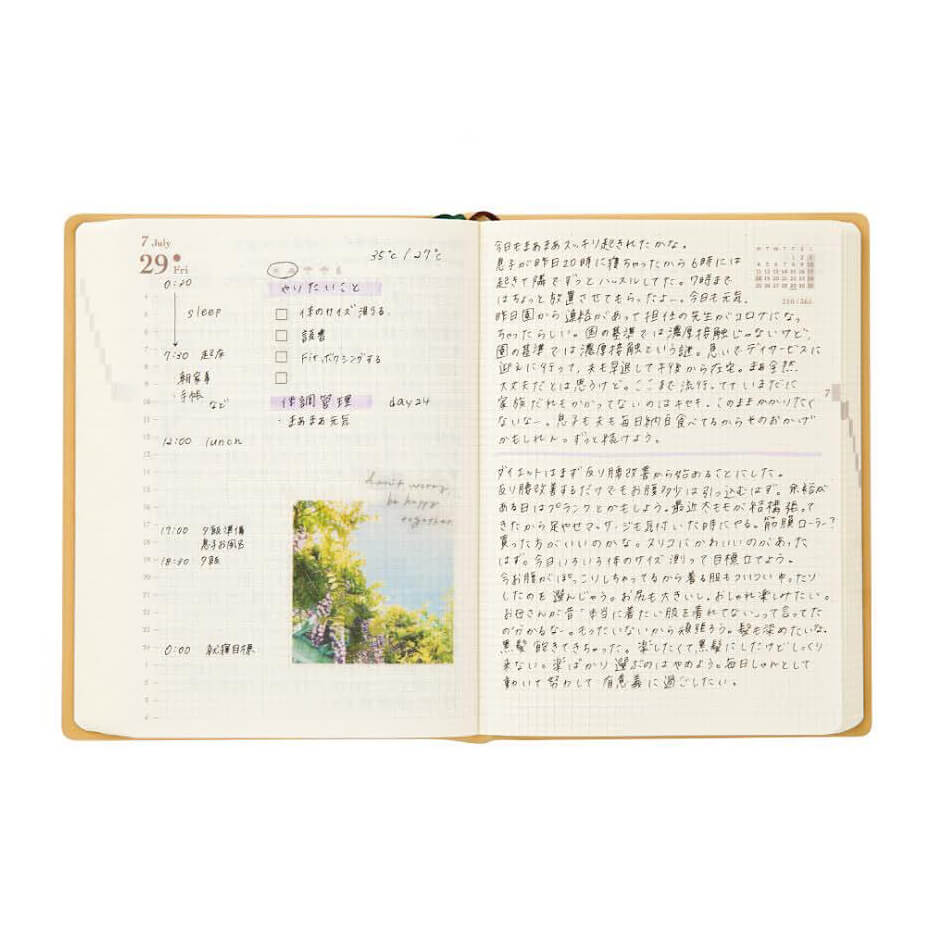 7 July
29 Fri
35℃/27℃
0:20
sleep
7:30 起床
朝家事
・手帳
など
12:00 lunch
17:00 夕飯準備
息子お風呂
18:30 夕飯
0:00 就寝目標
やりたいこと
体のサイズ測る
読書
Fitボクシングする
体調管理 day24
・まぁまぁ元気
don't worry,
be happy
今日もまぁまぁスッキリ起きれたかな。
息子が昨日20時に寝ちゃったから6時には
起きて隣でずっとハッスルしてた。7時まで
はちょっと放置させてもらったよー。今日も元気。
昨日園から連絡があって担任の先生がコロナになっ
ちゃったらしい。国の基準では濃厚接触じゃないけど、
園の基準では濃厚接触という謎。急いでデイサービスに
迎えに行って、夫も早退して午後から在宅。まぁ全然
大丈夫だとは思うけど。ここまで流行ってていまだに
家族だれもかかってないのはキセキ。このままかかりたく
ないなー。息子も夫も毎日納豆食べてるからそのおかげ
かもしれん。ずっと続けよう。
ダイエットはまず反り腰改善から始めることにした。
反り腰改善するだけでもお腹多少は引っ込むはず。余裕が
ある日はプランクとかもしよう。最近太ももが結構張って
きたから足やせマッサージも気付いた時にやる。筋膜ローラー?
買った方がいいのかな。スリコにかわいいのがあった
はず。今日いろいろ体のサイズ測って目標立てよう。
今お腹がぽっこりしちゃってるから着る服もついついゆったり
したのを選んじゃう。お尻も大きいし。おしゃれ楽しみたい。
お母さんが昔"本当に着たい服を着れてない"って言ってた
のがわかるなー。もったいないから頑張ろう。髪も染めたいな。
黒髪飽きてきちゃった。楽したくて黒髪にしたけどしっくり
来ない。楽ばかり選ぶのはやめよう。毎日しゃんとして
動いて努力して有意義に過ごしたい。
7